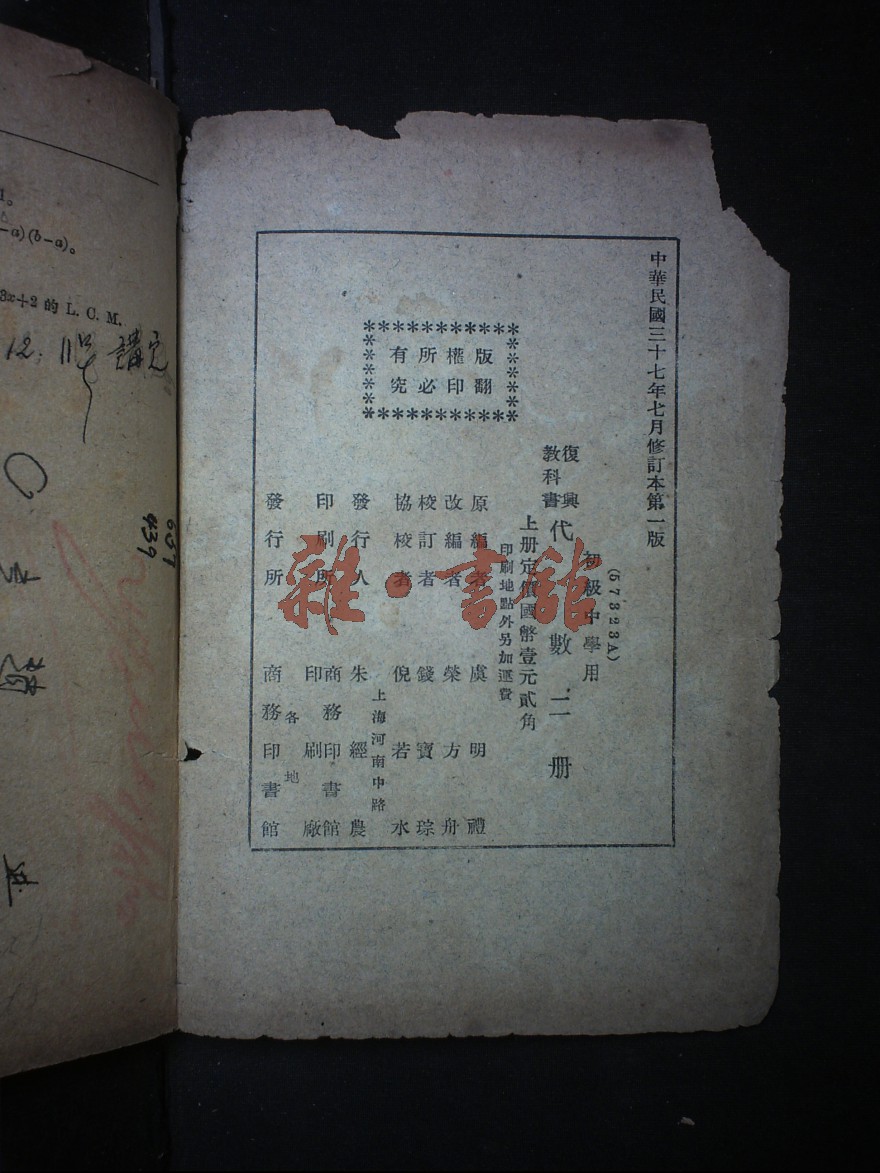 中華民國三十七年七月修訂本第一版
(57323A)
初級中學用
復興
教科書
代數 二冊
上册定價國幣壹元貳角
印刷地點外另加運費
版權所有
翻印必究
原編者 虞明禮
改編者 榮方舟
校訂者 錢寶琮
協校者 倪若水
上海河南中路
發行人 朱經農
印刷所 商務印書館
印刷廠
各地
發行所 商務印書館
雜·書館
1。
-a)(b-a)。
3x+2 的 L. C. M.
12.
講完
657
439